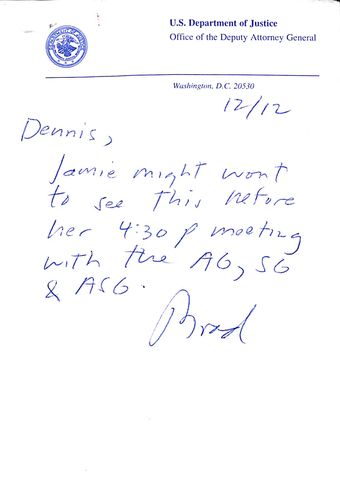 U.S. Department of Justice
Office of the Deputy Attorney General
Washington, D.C. 20530
12/12
Dennis,
Jamie might want
to see this before
her 4:30 p meeting
with the AG, SG
& ASG.
Brad